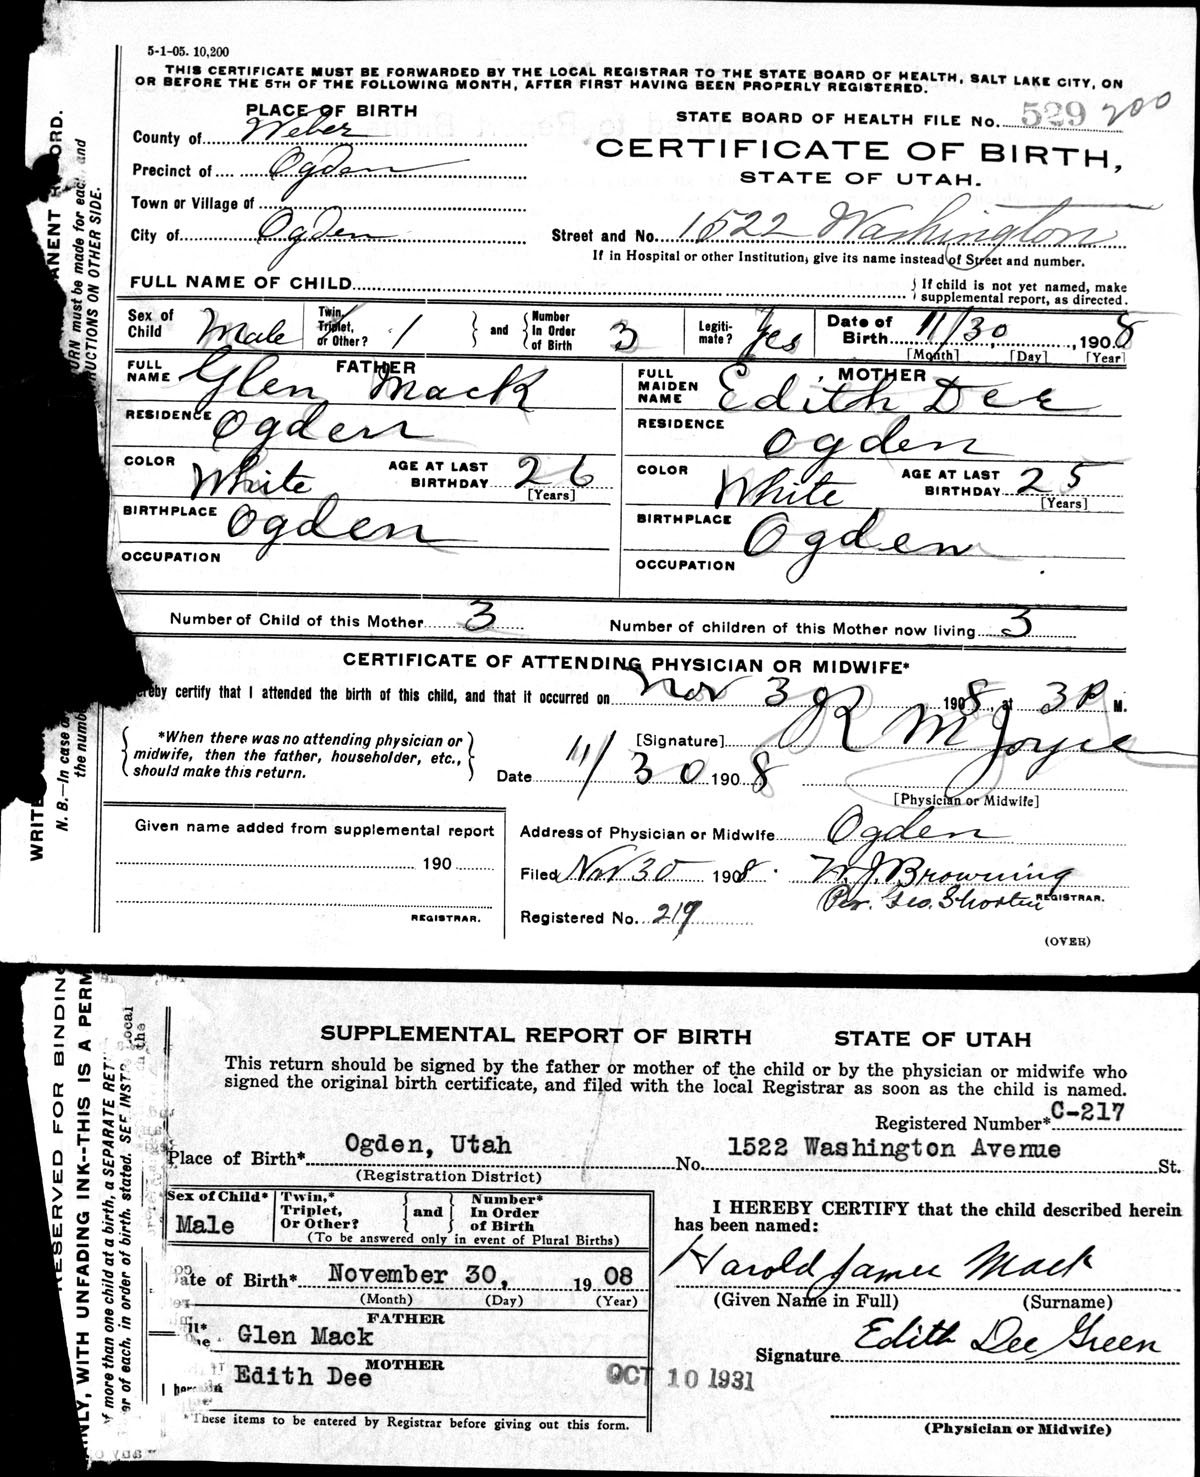 5-1-05. 10,200
THIS CERTIFICATE MUST BE FORWARDED BY THE LOCAL REGISTRAR TO THE STATE BOARD OF HEALTH, SALT LAKE CITY, ON
OR BEFORE THE 5TH OF THE FOLLOWING MONTH, AFTER FIRST HAVING BEEN PROPERLY REGISTERED.
PLACE OF BIRTH
STATE BOARD OF HEALTH FILE No. 529 200
County of Weber
CERTIFICATE OF BIRTH,
STATE OF UTAH.
Precinct of Ogden
Town or Village of
City of Ogden
Street and No. 1522 Washington
If in Hospital or other Institution, give its name instead of Street and number.
FULL NAME OF CHILD
{ If child is not yet named, make
supplemental report, as directed.
Sex of Child Male
Twin, Triplet, or Other? 1 } and { Number In Order of Birth 3
Legitimate? Yes
Date of Birth 11/30, 1908
[Month] [Day] [Year]
FATHER
FULL NAME Glen Mack
RESIDENCE Ogden
COLOR White AGE AT LAST BIRTHDAY 26
[Years]
BIRTHPLACE Ogden
OCCUPATION
MOTHER
FULL MAIDEN NAME Edith Dee
RESIDENCE Ogden
COLOR White AGE AT LAST BIRTHDAY 25
[Years]
BIRTHPLACE Ogden
OCCUPATION
Number of Child of this Mother 3 Number of children of this Mother now living 3
CERTIFICATE OF ATTENDING PHYSICIAN OR MIDWIFE*
reby certify that I attended the birth of this child, and that it occurred on Nov 3 1908, at 3 P M.
{ *When there was no attending physician or
midwife, then the father, householder, etc.,
should make this return. }
[Signature] R M Joyce
Date 11/30 1908
[Physician or Midwife]
Given name added from supplemental report
190
REGISTRAR.
Address of Physician or Midwife Ogden
Filed Nov 30 1908. W. J. Browning
Per. Geo. Shorten REGISTRAR.
Registered No. 219
(OVER)
WRITE
ANENT
ORD.
N. B.—In case
the numbe
URN must be made for each, and
UCTIONS ON OTHER SIDE.
RESERVED FOR BINDING
NLY, WITH UNFADING INK--THIS IS A PERM
f more than one child at a birth, a SEPARATE RET
er of each, in order of birth, stated. SEE INST
SUPPLEMENTAL REPORT OF BIRTH STATE OF UTAH
This return should be signed by the father or mother of the child or by the physician or midwife who
signed the original birth certificate, and filed with the local Registrar as soon as the child is named.
Registered Number* C-217
Place of Birth* Ogden, Utah No. 1522 Washington Avenue St.
(Registration District)
Sex of Child* Male
Twin,* Triplet, Or Other? } and { Number* In Order of Birth
(To be answered only in event of Plural Births)
ate of Birth* November 30, 1908
(Month) (Day) (Year)
FATHER
Glen Mack
MOTHER
Edith Dee
*These items to be entered by Registrar before giving out this form.
OCT 10 1931
I HEREBY CERTIFY that the child described herein
has been named:
Harold James Mack
(Given Name in Full) (Surname)
Signature Edith Dee Green
(Physician or Midwife)